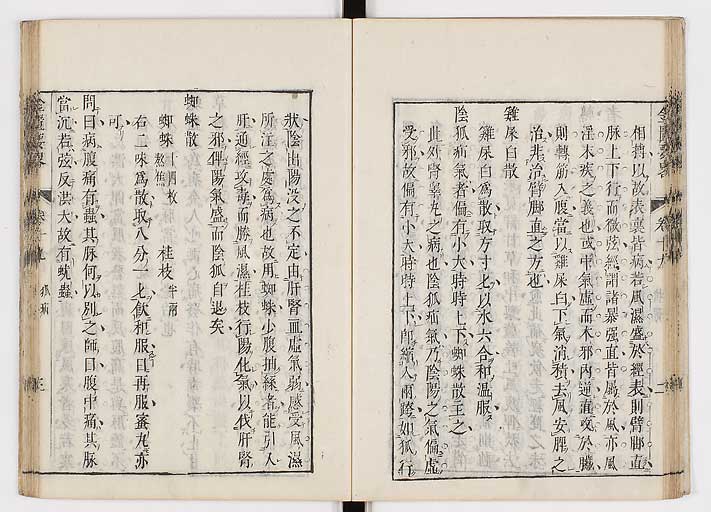 相持以故表裏皆病若風濕盛於經表則臂脚直
脉上下行而微弦經謂諸暴强直皆屬於風亦風
淫末疾之義也或中氣虛而木邪內逆直攻於臟
則轉筋入腹當以雞屎白下氣消積去風安脾之
治非治臂脚直之方也
雞屎白散
雞屎白爲散取方寸匕以水六合和温服
陰狐疝氣者偏有小大時時上下蜘蛛散主之
此外腎睾丸之病也陰狐疝氣乃陰陽之氣偏虛
受邪故偏有小大時時上下
狀陰出陽没之不定由肝腎血虛氣弱感受風濕
所注之處爲病也故用蜘蛛少腹抽絲者能引入
肝通經攻毒而勝風濕桂枝行陽化氣以伐肝腎
之邪俾陽氣盛而陰狐自退矣
蜘蛛散
蜘蛛十四枚 熬焦 桂枝半兩
右二味爲散取八分一匕飲和服日再服蜜丸亦
可
問曰病腹痛有蟲其脉何以別之師曰腹中痛其脉
當沉若弦反洪大故有蚘蟲
金匱要畧 卷十九 狐疝 三